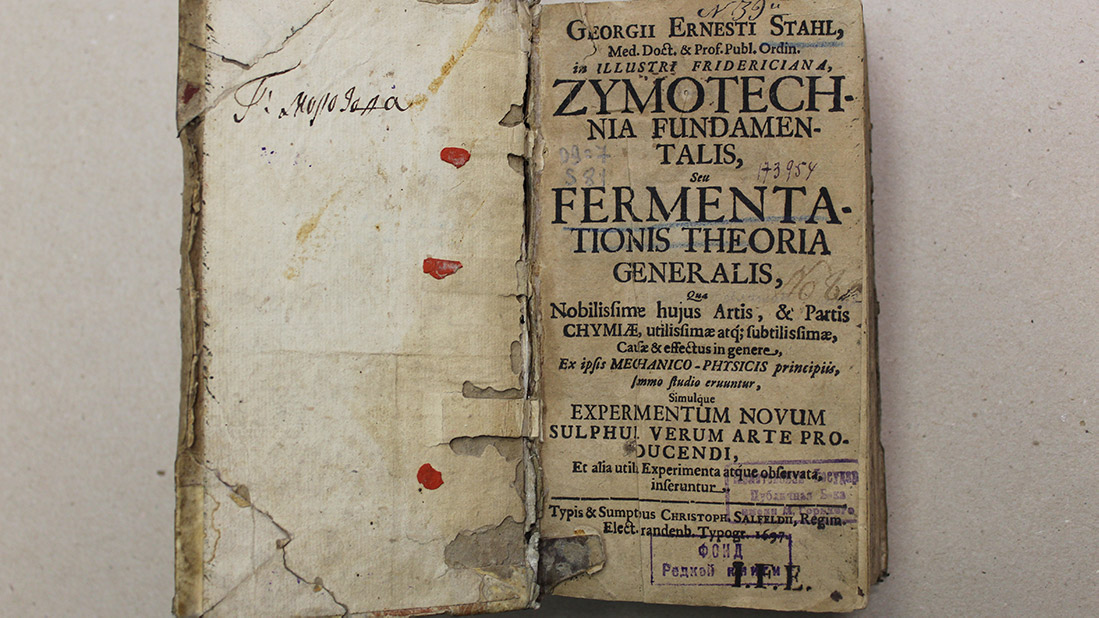 N 39
GEORGII ERNESTI STAHL,
Med. Doct. & Prof. Publ. Ordin.
in ILLUSTRI FRIDERICIANA,
ZYMOTECH-
NIA FUNDAMEN-
TALIS,
Seu
173954
FERMENTA-
TIONIS THEORIA
GENERALIS,
Qua
Nobilissimæ hujus Artis, & Partis
CHYMIÆ, utilissimæ atq; subtilissimæ,
Causæ & effectus in genere,
Ex ipsis MECHANICO-PHYSICIS principiis,
summo studio eruuntur,
Simulque
EXPERMENTUM NOVUM
SULPHU VERUM ARTE PRO-
DUCENDI,
Et alia utili Experimenta atque observata,
inseruntur.
Публичная
Typis & Sumptbus CHRISTOPH. SALFELDII, Regim.
Elect. randenb. Typogr. 1697.
ФОНД
Редкой книги
I.F.E.